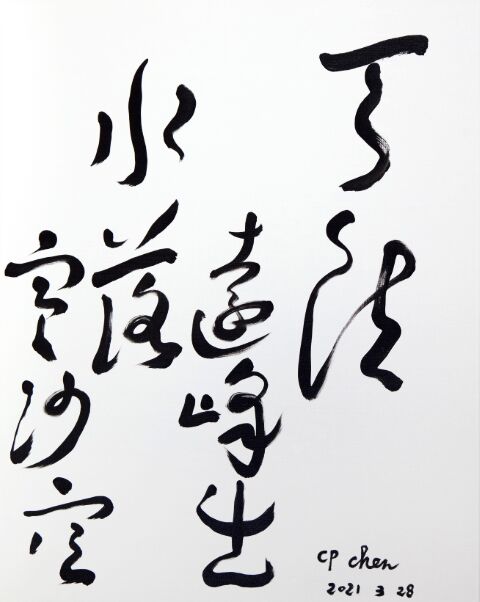 天清
遠峰出
水落
寒沙空
CP chen
2021 3 28